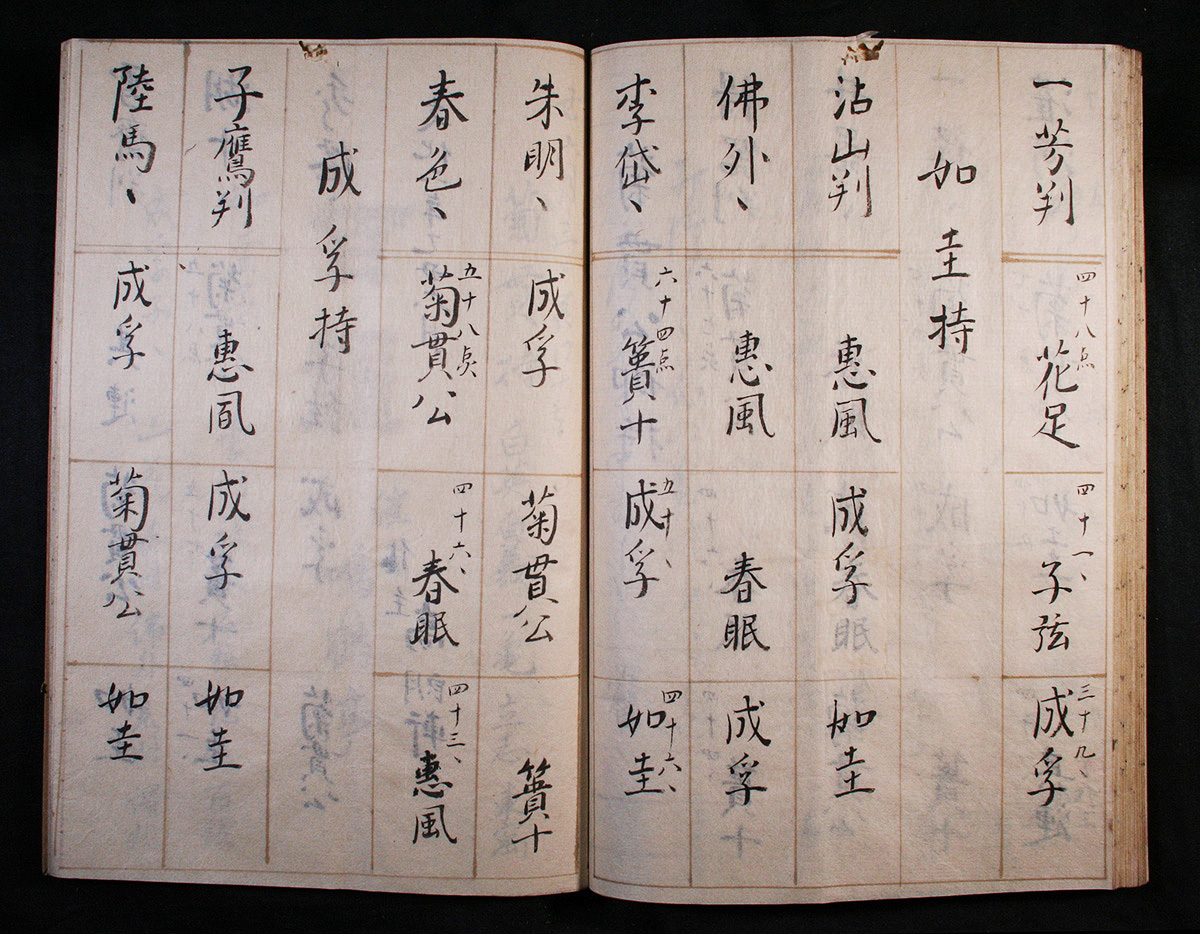 一芳判 四十八点 花足 四十一、 子弦 三十九、 成孚
如圭持
沾山判 惠風 成孚 如圭
佛外、 惠風 春眠 成孚
李岱、 六十四点 簣十 五十、 成孚 四十六、 如圭
朱明、 成孚 菊貫公 簣十
春色、 五十八点 菊貫公 四十六、 春眠 四十三、 惠風
成孚持
子鷹判 惠風 成孚 如圭
陸馬、 成孚 菊貫公 如圭